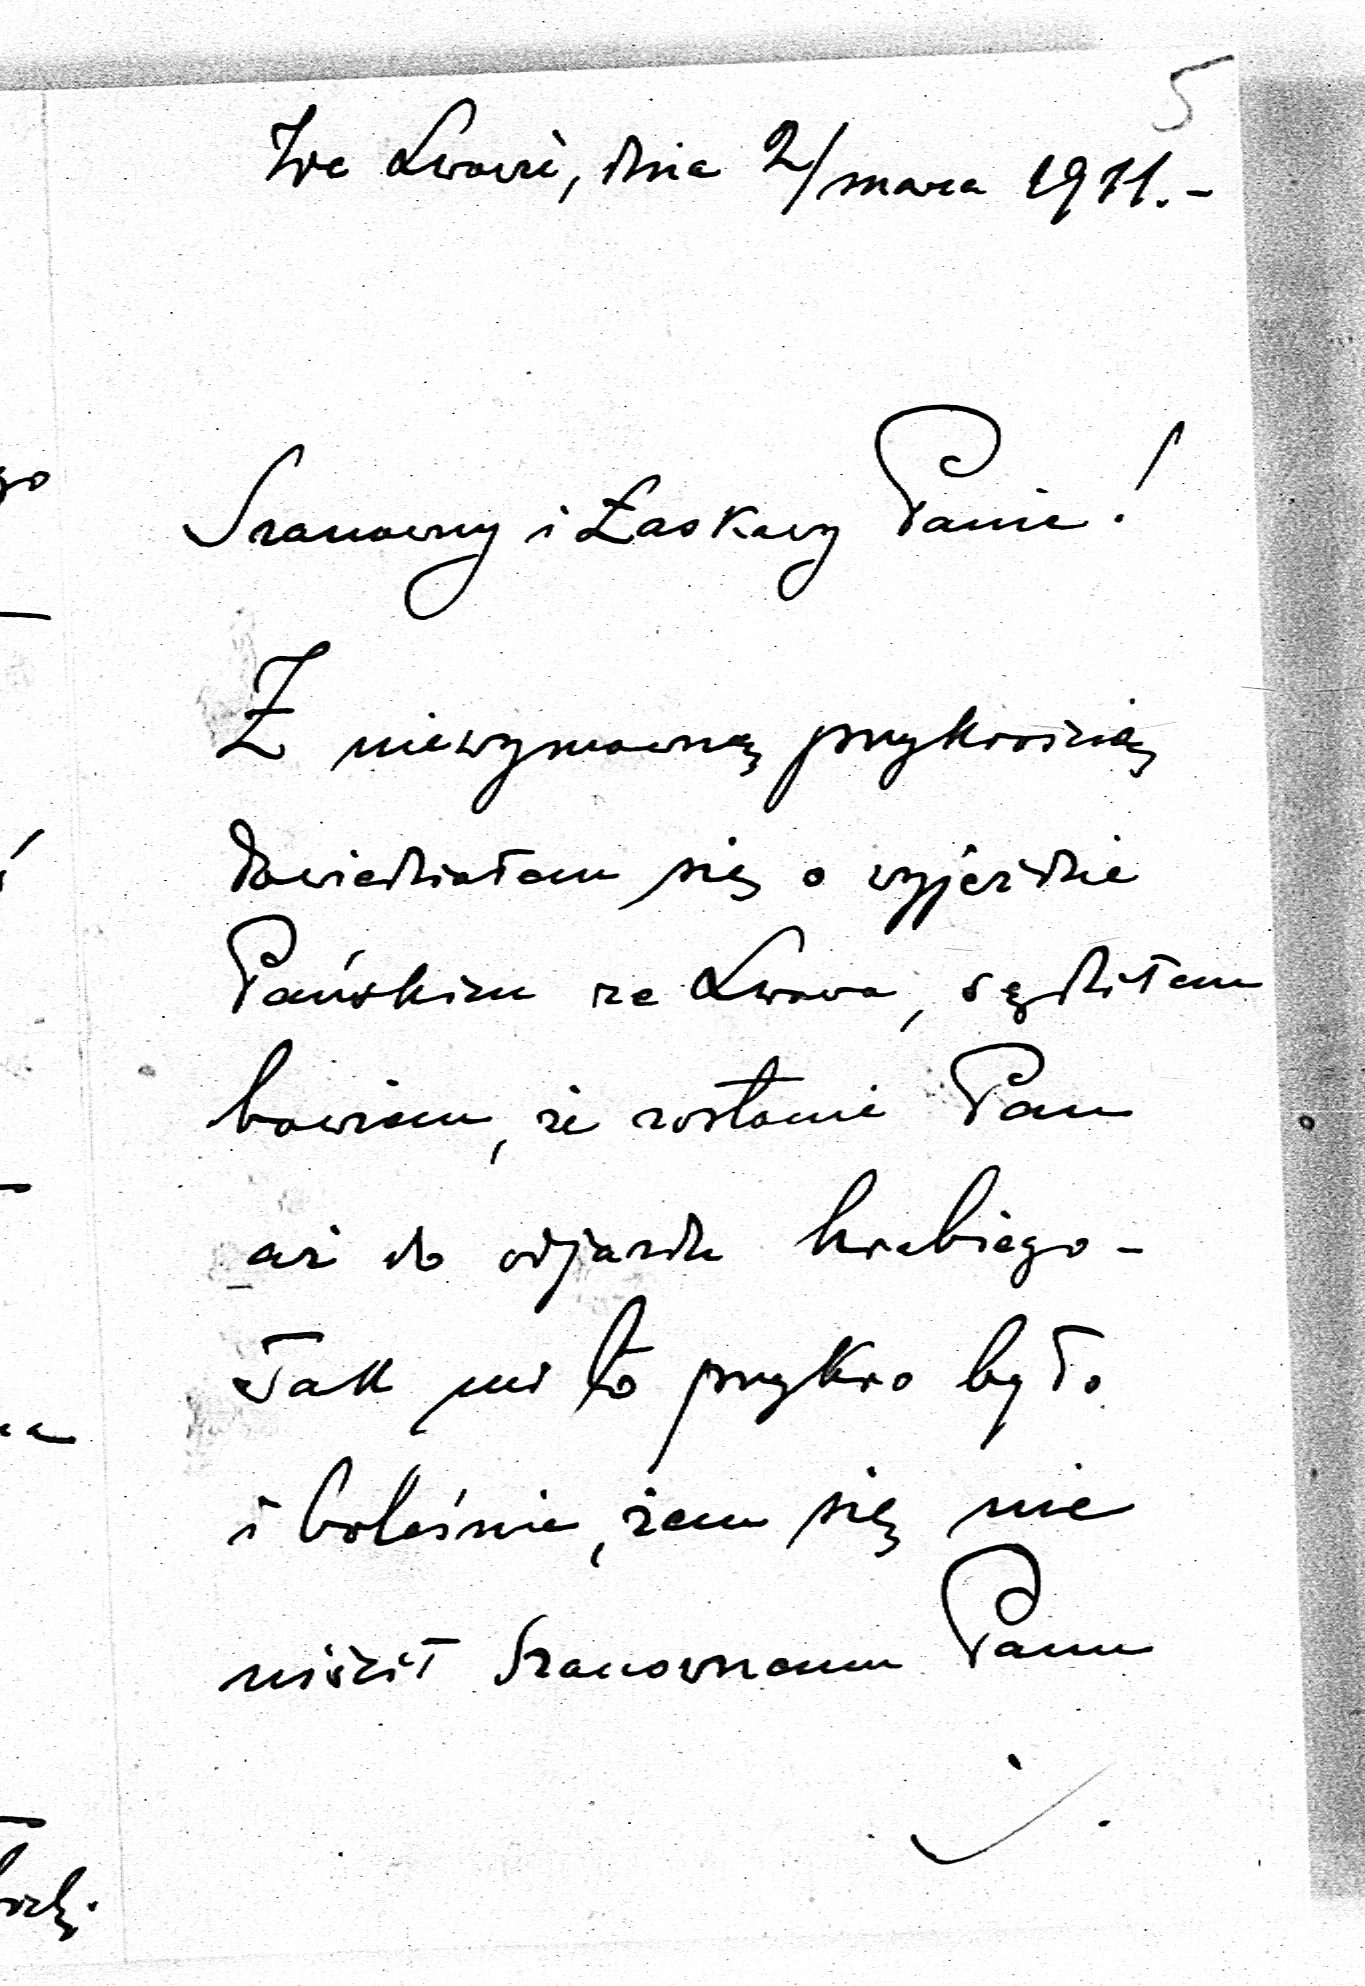 5
We Lwowie, dnia 2/marca 1911.-
Szanowny i Łaskawy Panie!
Z niewymowną przykrością
dowiedziałem się o wyjeździe
Pańskim ze Lwowa, sądziłem
bowiem, że zostanie Pan
aż do odjazdu hrabiego -
Tak mi to przykro było
i boleśnie, żem się nie
uiścił Szanownemu Panu